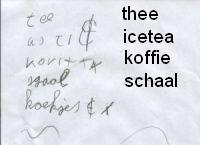 tee thee
as ti ¢ icetea
kovi koffie
sgaal schaal
koekjes ¢ x